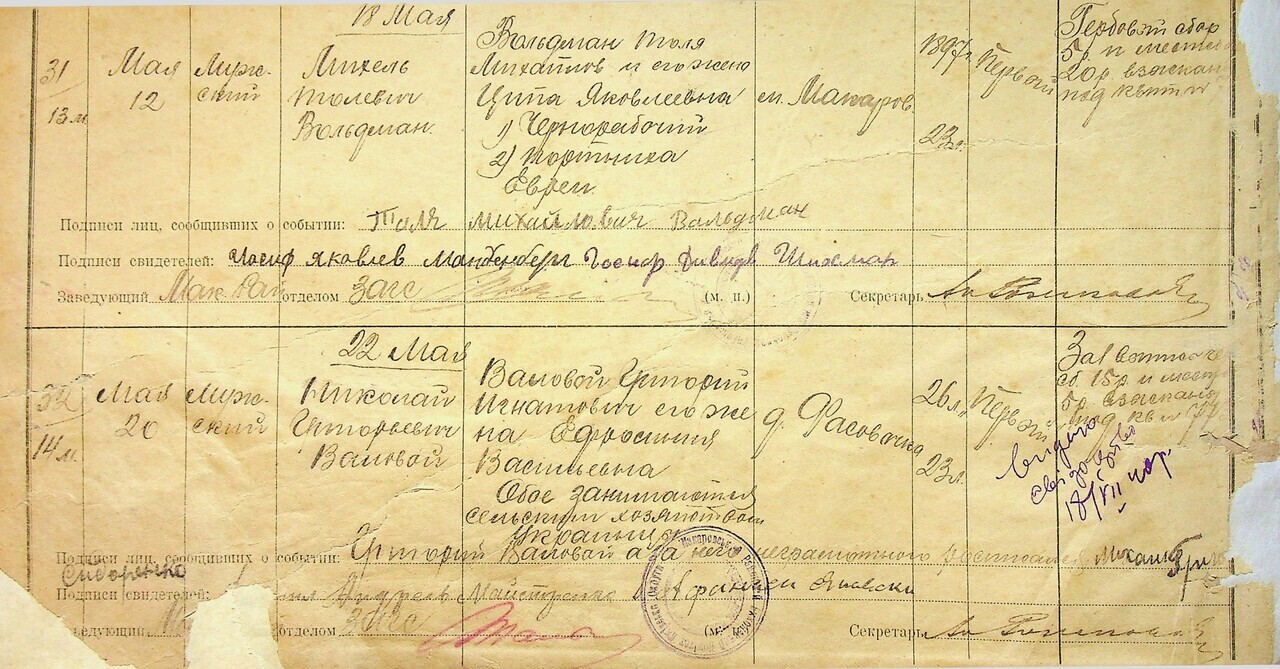 18 Мая
31
13 м.
Мая
12
Мужской
Михель
Толевич
Вольдман.
Вольдман Толя
Михайлов и его жена
Ципа Яковлевна
1) Чернорабочий
2) Портниха
Евреи.
м. Макаров.
1897 г.
23 л.
Первый
Гербовый сбор
5 р и местн
20 р взыскан
под квит №
Подписи лиц, сообщивших о событии: Толя Михайлович Вальдман
Подписи свидетелей: Иосиф Яковлев Иосиф Давидов Шихман
Заведующий Мак. Рай отделом Загс (м. п.) Секретарь
22 Мая
32
14 м.
Мая
20
Мужской
Николай
Григорьевич
Валовой
Валовой Григорий
Игнатович его же
на Ефросиния
Васильевна
Обое занимаются
сельским хозяйством
Украинцы
д. Фасовочка
26 л.
23 л.
Первый
сб. 15 р и местн
5 р взыскано
под кви
Видано
свідоцтво
18/VII
Подписи лиц, сообщивших о событии: Григорий Валовой а за него неграмотного расписался Михаил
Сидоренко
Подписи свидетелей: Андрей Майстренко
Заведующий отделом Загс (м. п.) Секретарь